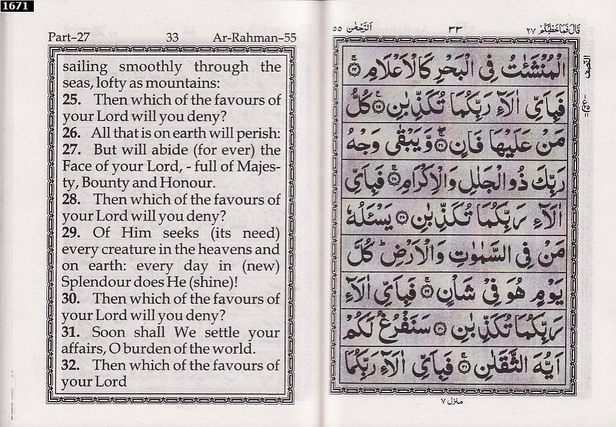 1671
Part–27 33 Ar-Rahman–55
sailing smoothly through the
seas, lofty as mountains:
25. Then which of the favours of
your Lord will you deny?
26. All that is on earth will perish:
27. But will abide (for ever) the
Face of your Lord, - full of Majes-
ty, Bounty and Honour.
28. Then which of the favours of
your Lord will you deny?
29. Of Him seeks (its need)
every creature in the heavens and
on earth: every day in (new)
Splendour does He (shine)!
30. Then which of the favours of
your Lord will you deny?
31. Soon shall We settle your
affairs, O burden of the world.
32. Then which of the favours of
your Lord
قَالَ فَمَا خَطْبُكُمْ ٢٧ ٣٣ اَلرَّحْمٰن ٥٥
الْمُنْشَئٰتُ فِى الْبَحْرِ كَالْاَعْلَامِ ۚ﴿٢٤﴾
فَبِاَىِّ اٰلَآءِ رَبِّكُمَا تُكَذِّبٰنِ ﴿٢٥﴾ كُلُّ
مَنْ عَلَيْهَا فَانٍ ۖ﴿٢٦﴾ وَّيَبْقٰى وَجْهُ
رَبِّكَ ذُو الْجَلٰلِ وَالْاِكْرَامِ ۚ﴿٢٧﴾ فَبِاَىِّ
اٰلَآءِ رَبِّكُمَا تُكَذِّبٰنِ ﴿٢٨﴾ يَسْئَلُهٗ
مَنْ فِى السَّمٰوٰتِ وَالْاَرْضِ ؕ كُلَّ
يَوْمٍ هُوَ فِىْ شَاْنٍ ۚ﴿٢٩﴾ فَبِاَىِّ اٰلَآءِ
رَبِّكُمَا تُكَذِّبٰنِ ﴿٣٠﴾ سَنَفْرُغُ لَكُمْ
اَيُّهَ الثَّقَلٰنِ ۚ﴿٣١﴾ فَبِاَىِّ اٰلَآءِ رَبِّكُمَا
النصف
منزل ٧